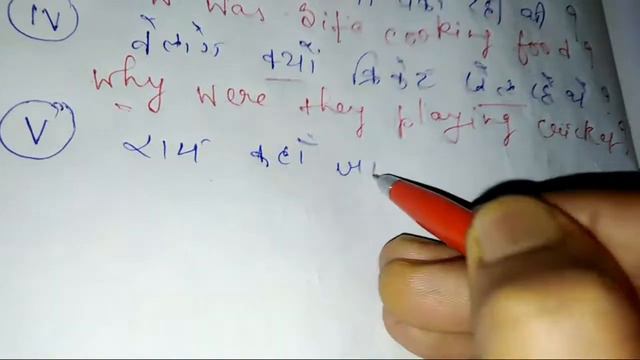 IV
was Sita cooking food ?
वे लोग क्यों क्रिकेट खेल रहे थे ?
why were they playing cricket ?
V राम कहाँ